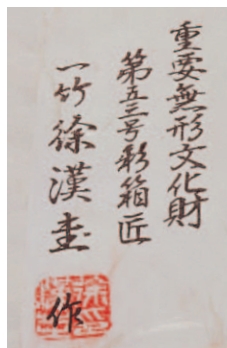 重要無形文化財
第五三号彩箱匠
一竹徐漢圭作